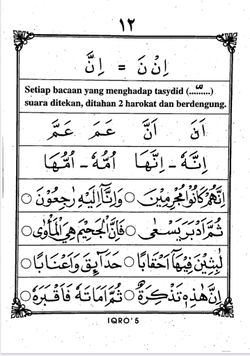 ١٢
اِنْ نَ = اِنَّ
Setiap bacaan yang menghadap tasydid (...ّ...)
suara ditekan, ditahan 2 harokat dan berdengung.
اَنَ اَنَّ عَمَ عَمَّ
اِنَّهٗ - اِنَّهَا اُمُّهٗ - اُمُّهَا
اِنَّهُمْ كَانُوْا مُجْرِمِيْنَ ○ وَاِنَّآ اِلَيْهِ رٰجِعُوْنَ ○
ثُمَّ اَدْبَرَ يَسْعٰى ○ فَاِنَّ الْجَحِيْمَ هِيَ الْمَأْوٰى ○
لٰبِثِيْنَ فِيْهَآ اَحْقَابًا ○ حَدَآئِقَ وَاَعْنَابًا ○
اِنَّ هٰذِهٖ تَذْكِرَةٌ ○ ثُمَّ اَمَاتَهٗ فَاَقْبَرَهٗ ○
IQRO' 5